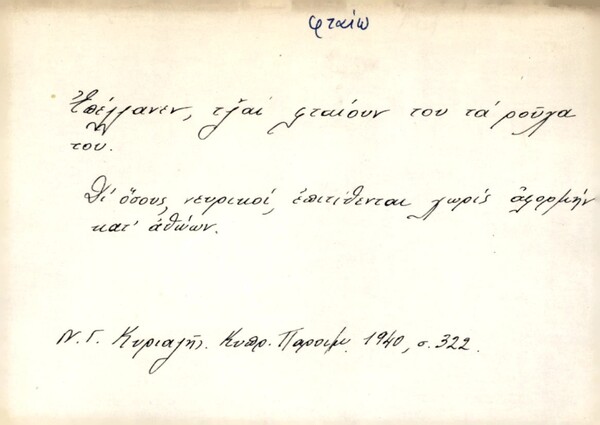 φταίω
Ἐπέλλανεν, τζ̌αί φταίουν του τά ροῦχα
του.
Δι' ὅσους, νευρικοί, ἐπιτίθενται χωρίς ἀφορμήν
κατ' ἀθώων.
Ν. Γ. Κυριαζῆς. Κυπρ. Παροιμ. 1940, σ. 322.